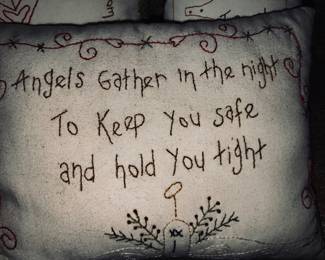 Angels Gather in the night
To Keep You safe
and hold You tight
xx